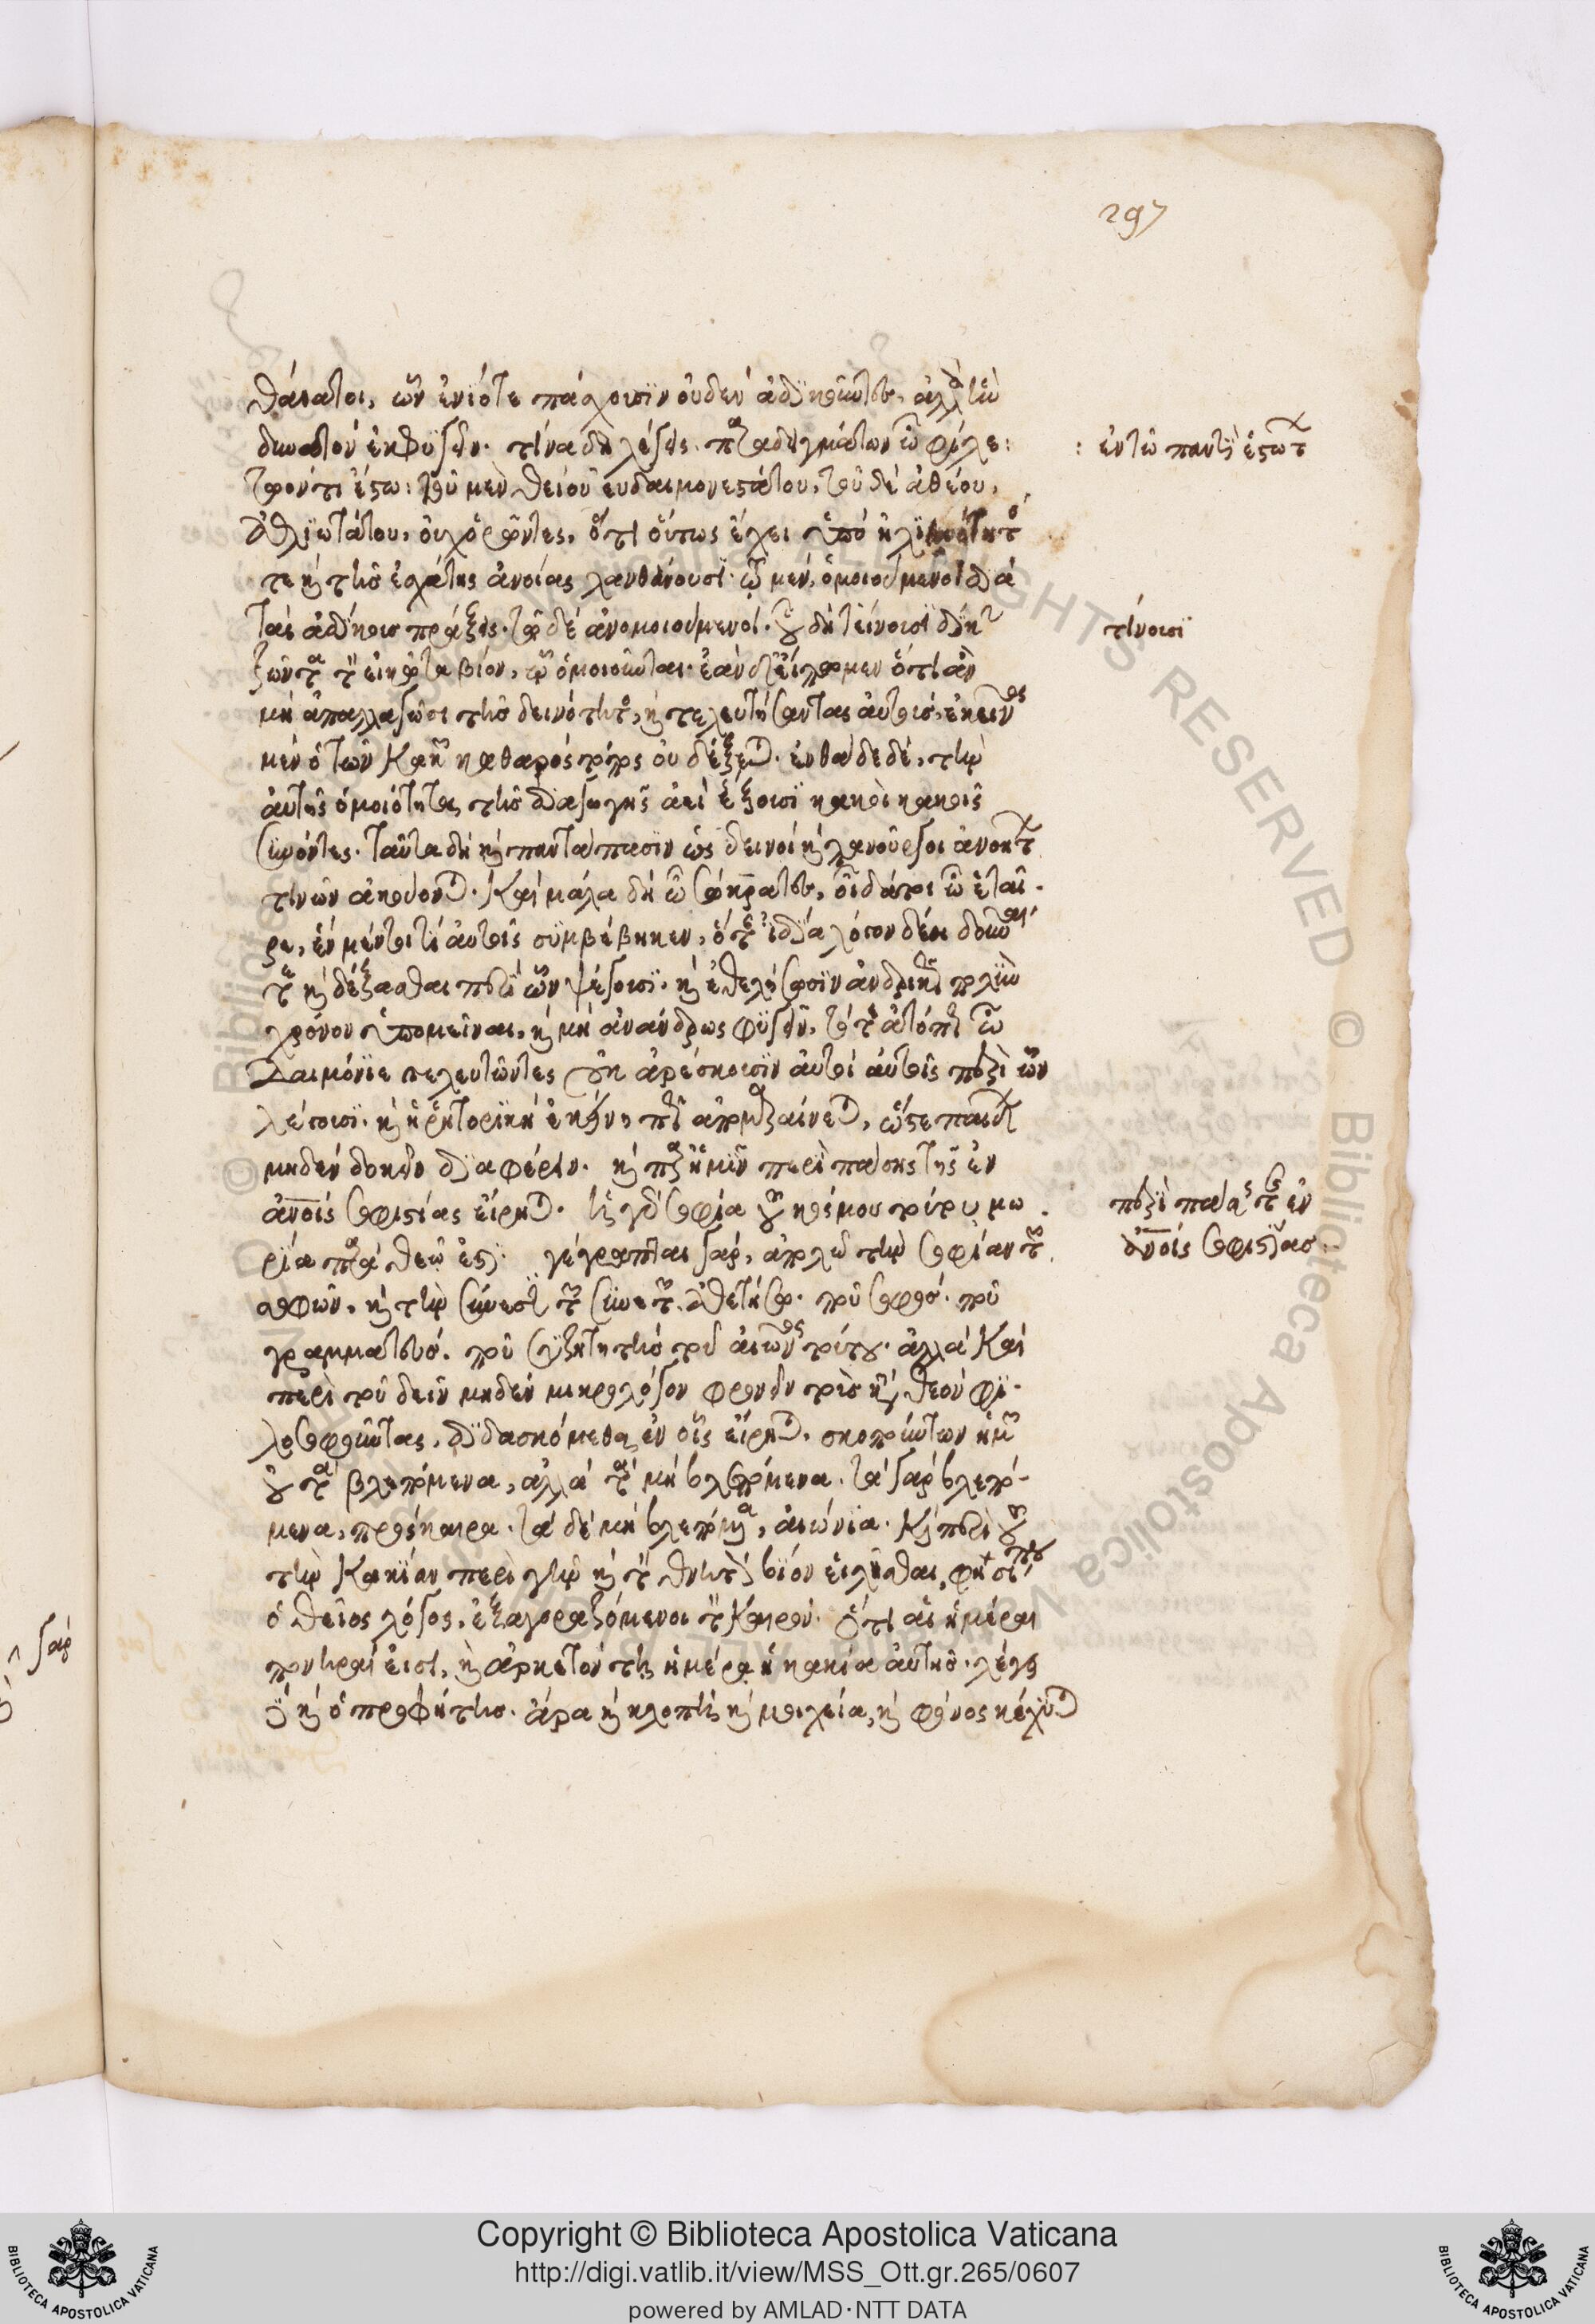 297
θάνατοι, ὧν ἐνίοτε πάσχουσιν οὐδὲν ἀδικοῦντες, ἀλλὰ ἣν
ἀδύνατον ἐκφυγεῖν. τίνα δὴ λέγεις. παραδειγμάτων ὦ φίλε:
: ἐν τῷ παντὶ ἑστώτων
τοῦ μὲν θείου εὐδαιμονεστάτου, τοῦ δὲ ἀθέου,
ἀθλιωτάτου, οὐχ ὁρῶντες, ὅτι οὕτως ἔχει ὑπὸ ἠλιθιότητος
τε καὶ τῆς ἐσχάτης ἀνοίας λανθάνουσι τῷ μὲν, ὁμοιούμενοι διὰ
τὰς ἀδίκους πράξεις. τῷ δὲ ἀνομοιούμενοι. οὗ δὴ τίνουσι δίκην
τίνουσι
ζῶντες τὸν εἰκότα βίον, ᾧ ὁμοιοῦνται. ἐὰν δ' εἴπωμεν ὅτι ἂν
μὴ ἀπαλλαγῶσι τῆς δεινότητος, καὶ τελευτήσαντας αὐτοὺς, ἐκεῖνος
μὲν ὁ τῶν κακῶν καθαρὸς τόπος οὐ δέξεται. ἐνθάδε δὲ, τὴν
αὐτῆς ὁμοιότητα τῆς διαγωγῆς ἀεὶ ἕξουσι κακοὶ κακοῖς
συνόντες. ταῦτα δὴ καὶ παντάπασιν ὡς δεινοὶ καὶ πανοῦργοι ἀνοήτων
τινῶν ἀκούονται. Καὶ μάλα δὴ ὦ Σώκρατες, οἶδά τοι ὦ ἑταῖ-
ρε, ἓν μέντοι τι αὐτοῖς συμβέβηκεν, ὅταν ἰδίᾳ λόγον δέῃ δοῦναι
τε καὶ δέξασθαι περὶ ὧν ψέγουσι. καὶ ἐθελήσωσιν ἀνδρικῶς πολὺν
χρόνον ὑπομεῖναι, καὶ μὴ ἀνάνδρως φυγεῖν, τότε ἀτόπως ὦ
Δαιμόνιε τελευτῶντες οὐκ ἀρέσκουσιν αὐτοὶ αὑτοῖς περὶ ὧν
λέγουσι. καὶ ἡ ῥητορικὴ ἐκείνη πως ἀπομαραίνεται, ὥστε παίδων
μηδὲν δοκεῖν διαφέρειν. καὶ παρ' ἡμῖν περὶ πάσης τῆς ἐν
ἀνοις σοφιστίας εἴρηται. ἡ γὰρ σοφία τοῦ κόσμου τούτου μω
περὶ πάσης τῆς ἐν
ἀνοις σοφιστίας:
ρία παρὰ θεῷ ἐστι. γέγραπται γάρ, ἀπολῶ τὴν σοφίαν τῶν
σοφῶν, καὶ τὴν σύνεσιν τῶν συνετῶν ἀθετήσω. ποῦ σοφός. ποῦ
γραμματεύς. ποῦ συζητητὴς τοῦ αἰῶνος τούτου. ἀλλὰ καὶ
περὶ τοῦ δεῖν μηδὲν μικρολόγον φρονεῖν τοὺς κατὰ θεὸν φι-
λοσοφοῦντας, διδασκόμεθα ἐν οἷς εἴρηται, σκοπούντων ἡμῶν
οὐ τὰ βλεπόμενα, ἀλλὰ τὰ μὴ βλεπόμενα. τὰ γὰρ βλεπό-
μενα, πρόσκαιρα. τὰ δὲ μὴ βλεπόμενα, αἰώνια. Καὶ περὶ τοῦ
τὴν κακίαν περὶ γῆν καὶ τὸν θνητὸν βίον εἰλεῖσθαι, φησί που
ὁ θεῖος λόγος, ἐξαγοραζόμενοι τὸν καιρὸν. ὅτι αἱ ἡμέραι
πονηραί εἰσι, καὶ ἀρκετὸν τῇ ἡμέρᾳ ἡ κακία αὐτῆς. λέγει
δὲ καὶ ὁ προφήτης. ἀρὰ καὶ κλοπὴ καὶ μοιχεία, καὶ φόνος κέχυται
γὰρ
Copyright © Biblioteca Apostolica Vaticana
http://digi.vatlib.it/view/MSS_Ott.gr.265/0607
powered by AMLAD·NTT DATA